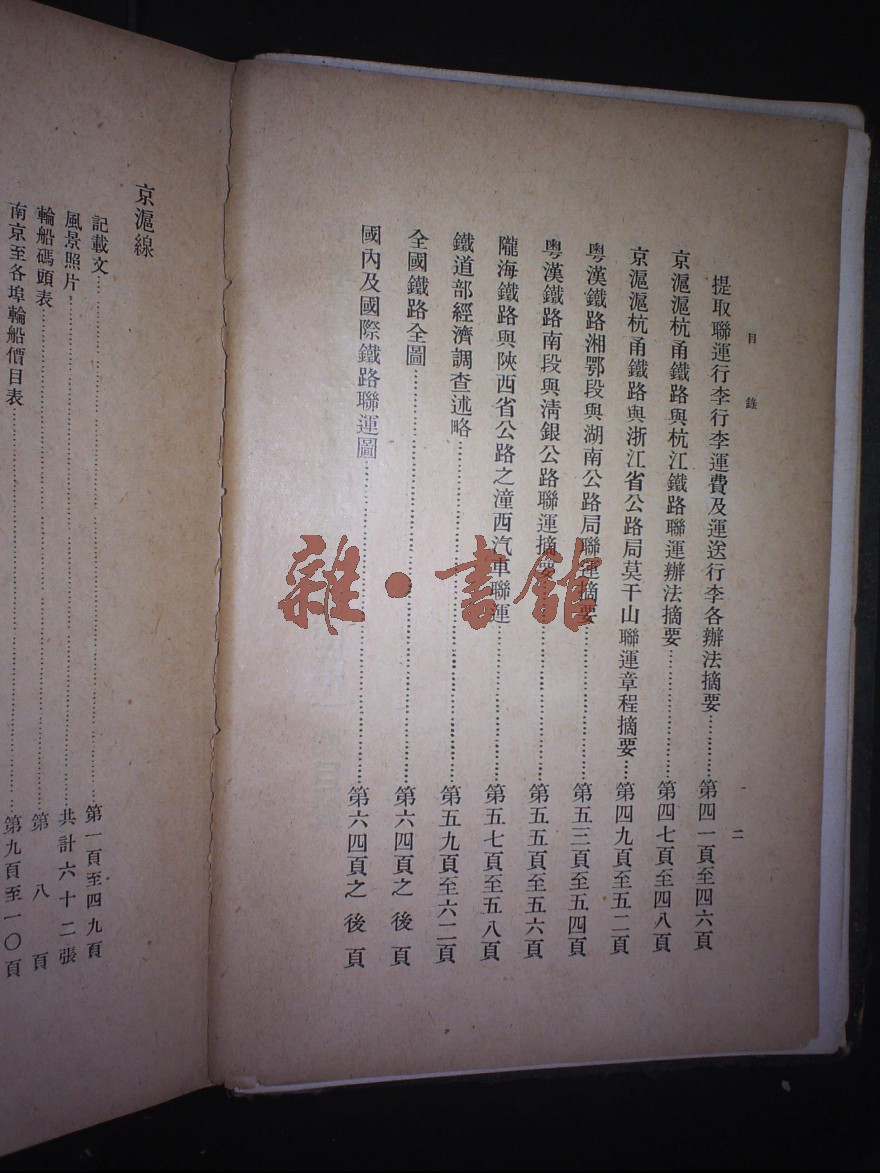 目錄
提取聯運行李行李運費及運送行李各辦法摘要………第四一頁至四六頁
京滬滬杭甬鐵路與杭江鐵路聯運辦法摘要………第四七頁至四八頁
京滬滬杭甬鐵路與浙江省公路局莫干山聯運章程摘要…第四九頁至五二頁
粵漢鐵路湘鄂段與湖南公路局聯運摘要………第五三頁至五四頁
粵漢鐵路南段與清銀公路聯運摘要………第五五頁至五六頁
隴海鐵路與陝西省公路之潼西汽車聯運………第五七頁至五八頁
鐵道部經濟調查述略………第五九頁至六二頁
全國鐵路全圖………第六四頁之後頁
國內及國際鐵路聯運圖………第六四頁之後頁
二
京滬線
記載文………第一頁至四九頁
風景照片………共計六十二張
輪船碼頭表………第八頁
南京至各埠輪船價目表………第九頁至一〇頁
雜·書館